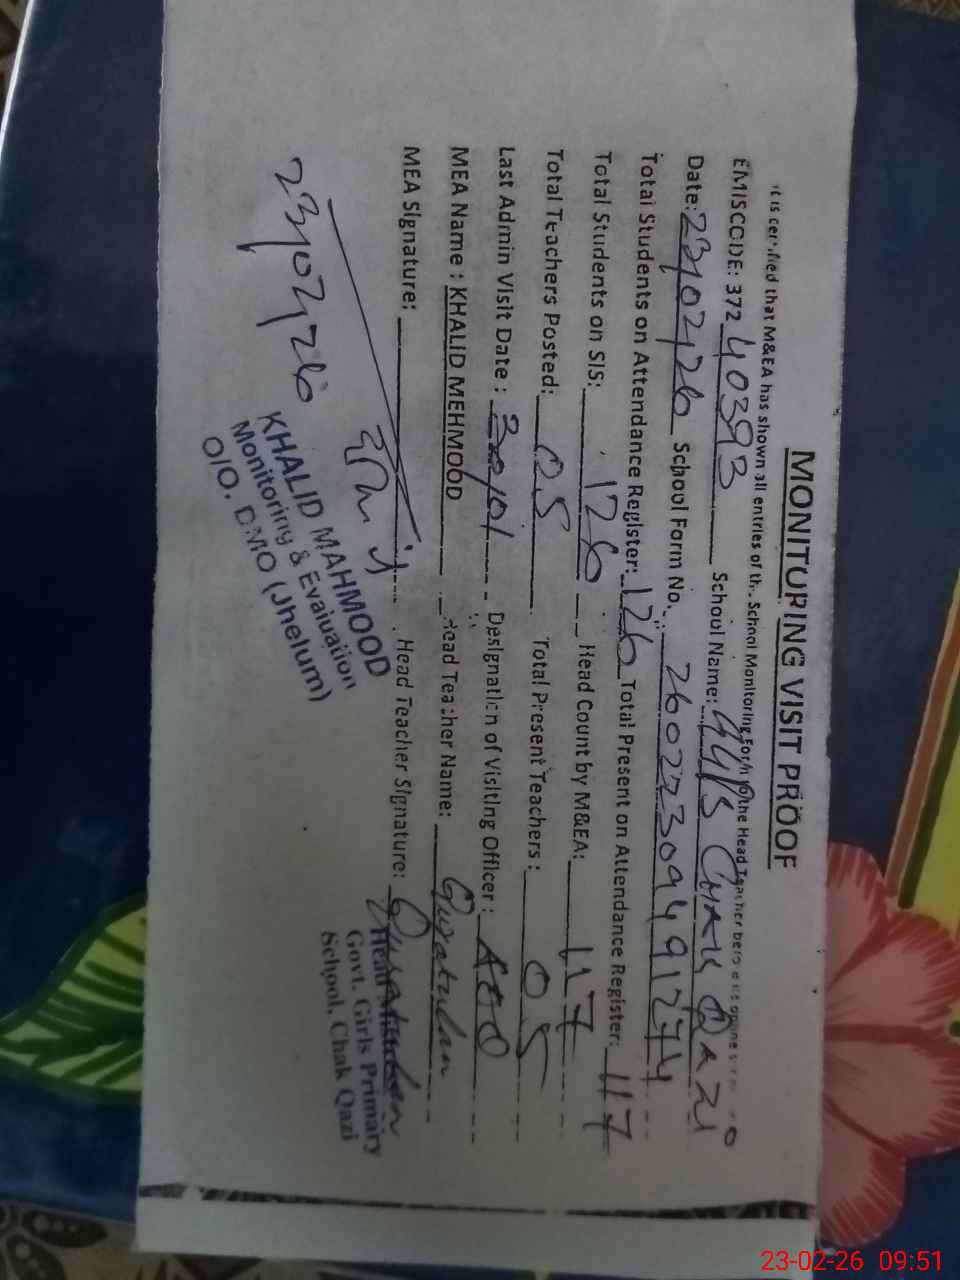 MONITURING VISIT PROOF
It is certified that M&EA has shown all entries of the School Monitoring Form to the Head Teacher before its online
EMISCODE: 372 40393 School Name: GGPS CHAK QAZI
Date: 23/02/26 School Form No. 260223094491274
Total Students on Attendance Register: 126 Total Present on Attendance Register: 117
Total Students on SIS: 126 Head Count by M&EA: 117
Total Teachers Posted: 05 Total Present Teachers: 05
Last Admin Visit Date: 30/01 Designation of Visiting Officer: AEO
MEA Name: KHALID MEHMOOD Head Teacher Name: Quratulan
MEA Signature: Head Teacher Signature: Quratulan
23/02/26
KHALID MAHMOOD
Monitoring & Evaluation
O/O. DMO (Jhelum)
Head
Govt. Girls Primary
School, Chak Qazi
23-02-26 09:51